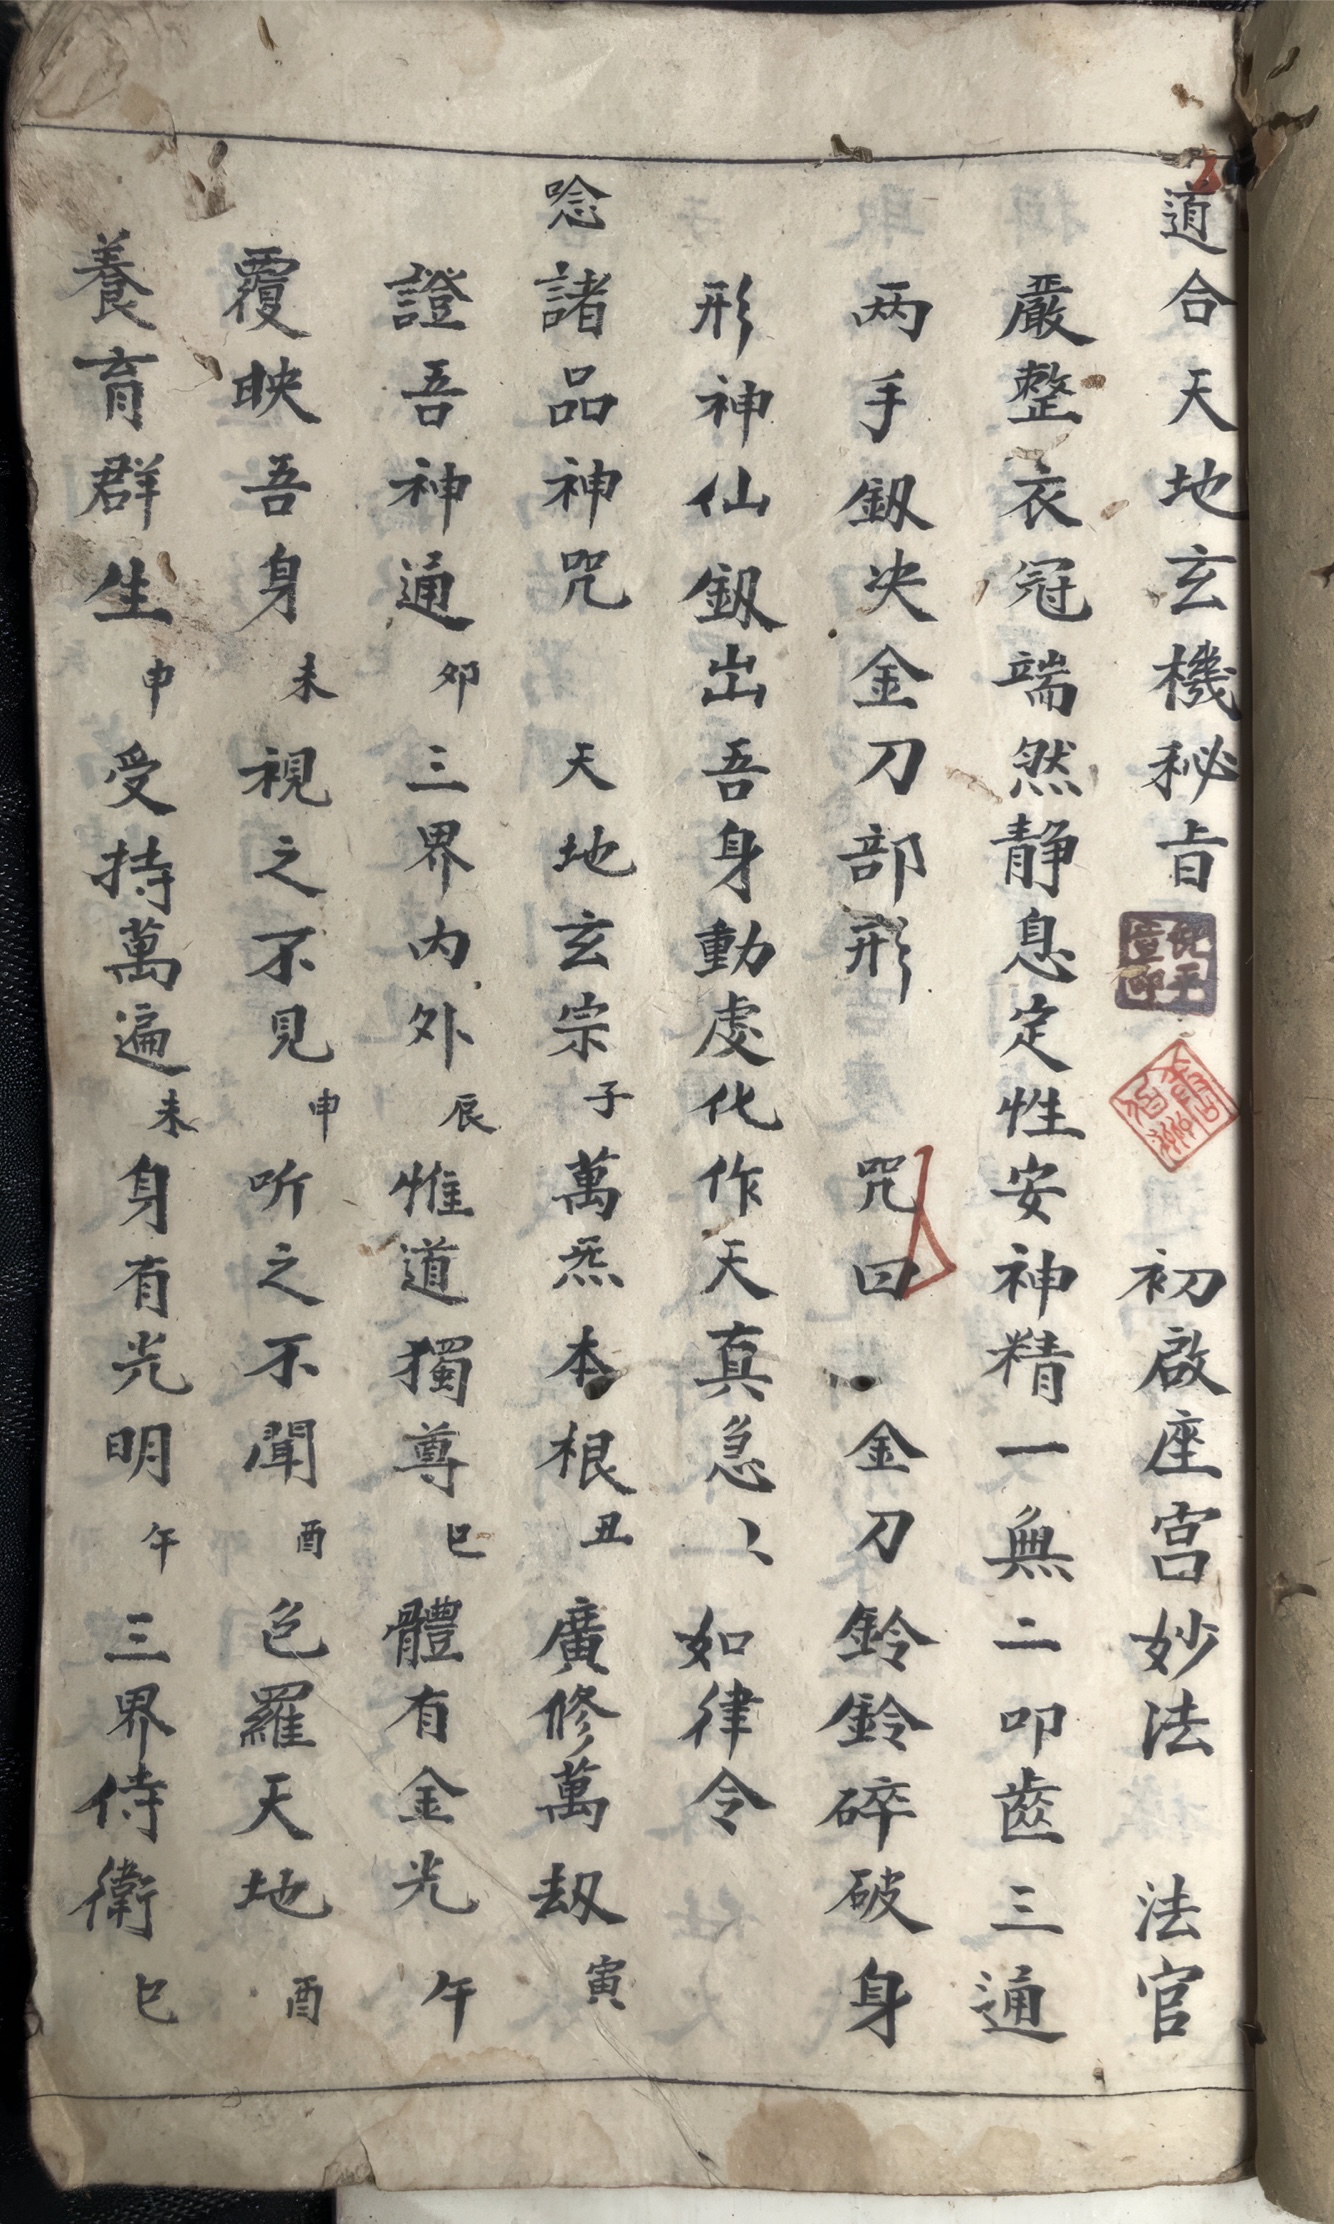 道合天地玄機秘旨 初啟座宫妙法 法官
嚴整衣冠端然静息定性安神精一無二叩齒三通
两手釼决金刀部形 咒曰 金刀鈴鈴碎破身
形神仙釼出吾身動處化作天真急〻如律令
唸諸品神咒 天地玄宗子萬炁本根丑廣修萬刼寅
證吾神通卯三界内外辰惟道獨尊巳體有金光午
覆映吾身未視之不見申听之不聞酉包羅天地酉
養育群生申受持萬遍未身有光明午三界侍衛巳